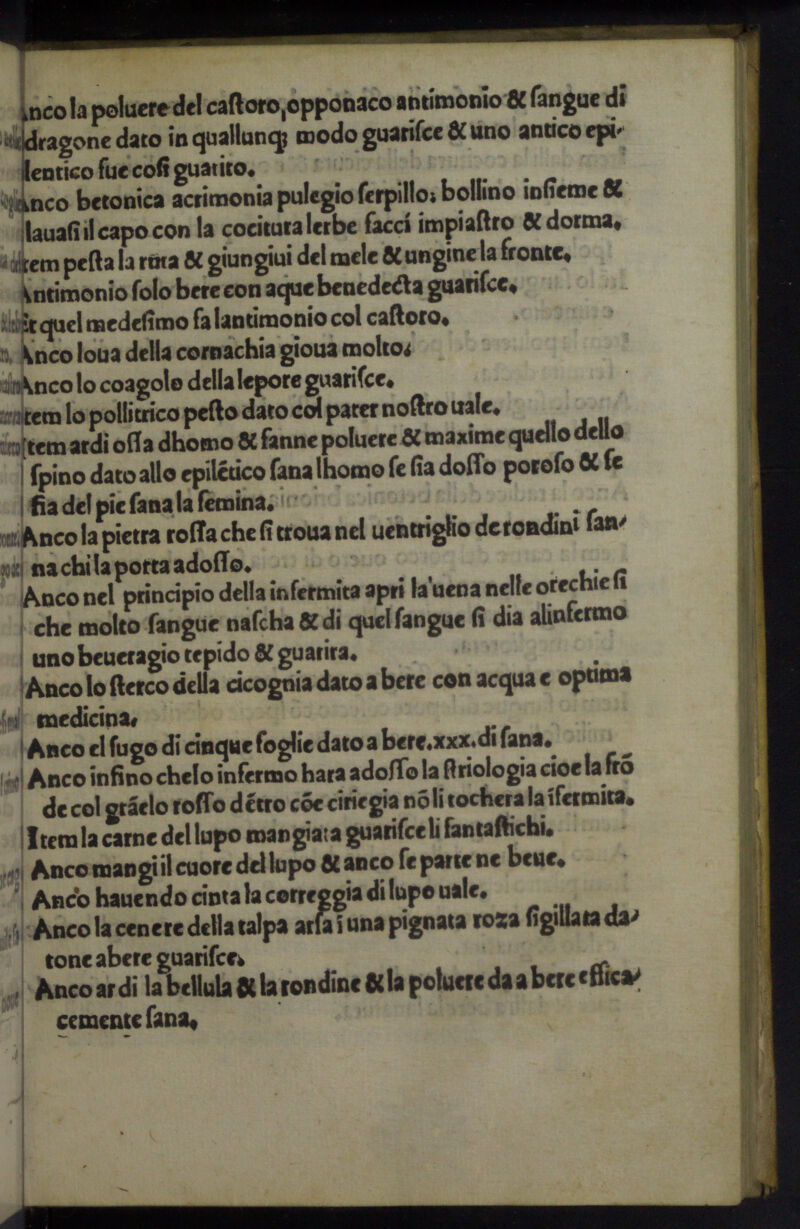 Anco la poluere del caſtoro,opponaco antimonio & ſangue di
dragone dato in quallunq; modo guariſce & uno antico epi-
lentico fue coſi guarito.
Anco betonica acrimonia pulegio ſerpillo; bollino inſieme &
lauaſi il capo con la cocitura lerbe facci impiaſtro & dorma.
Item peſta la ruta & giungiui del mele & ungine la fronte.
Antimonio ſolo bere con aque benedecta guariſce.
Et quel medeſimo fa lantimonio col caſtoro.
Anco loua della cornachia gioua molto;
Anco lo coagolo della lepore guariſce.
Item lo pollitrico peſto dato col pater noſtro uale.
Item ardi oſſa dhomo & fanne poluere & maxime quello dello
ſpino dato allo epilético ſana lhomo ſe ſia doſſo poroſo & ſe
ſia del pie ſana la femina.
Anco la pietra roſſa che ſi troua nel uentriglio de rondini ſan-
na chi la porta adoſſo.
Anco nel principio della infermita apri la uena nelle orechie ſi
che molto ſangue naſcha & di quel ſangue ſi dia alinfermo
uno beueragio tepido & guarira.
Anco lo ſterco della cicognia dato a bere con acqua e optima
medicina.
Anco el ſugo di cinque foglie dato a bere.xxx.di ſana.
Anco infino chelo infermo hara adoſſo la ſtriologia cioe la frõ
de col grãelo roſſo dẽtro cõe ciriegia nõ li tochera la ĩfermita.
Item la carne del lupo mangiata guariſce li fantaſtichi.
Anco mangi il cuore del lupo & anco ſe parte ne beue.
Anco hauendo cinta la correggia di lupo uale.
Anco la cenere della talpa arſa ĩ una pignata roza ſigillata da-
tone abere guariſce.
Anco ardi la bellula & la rondine & la poluere da a bere effica-
cemente ſana.